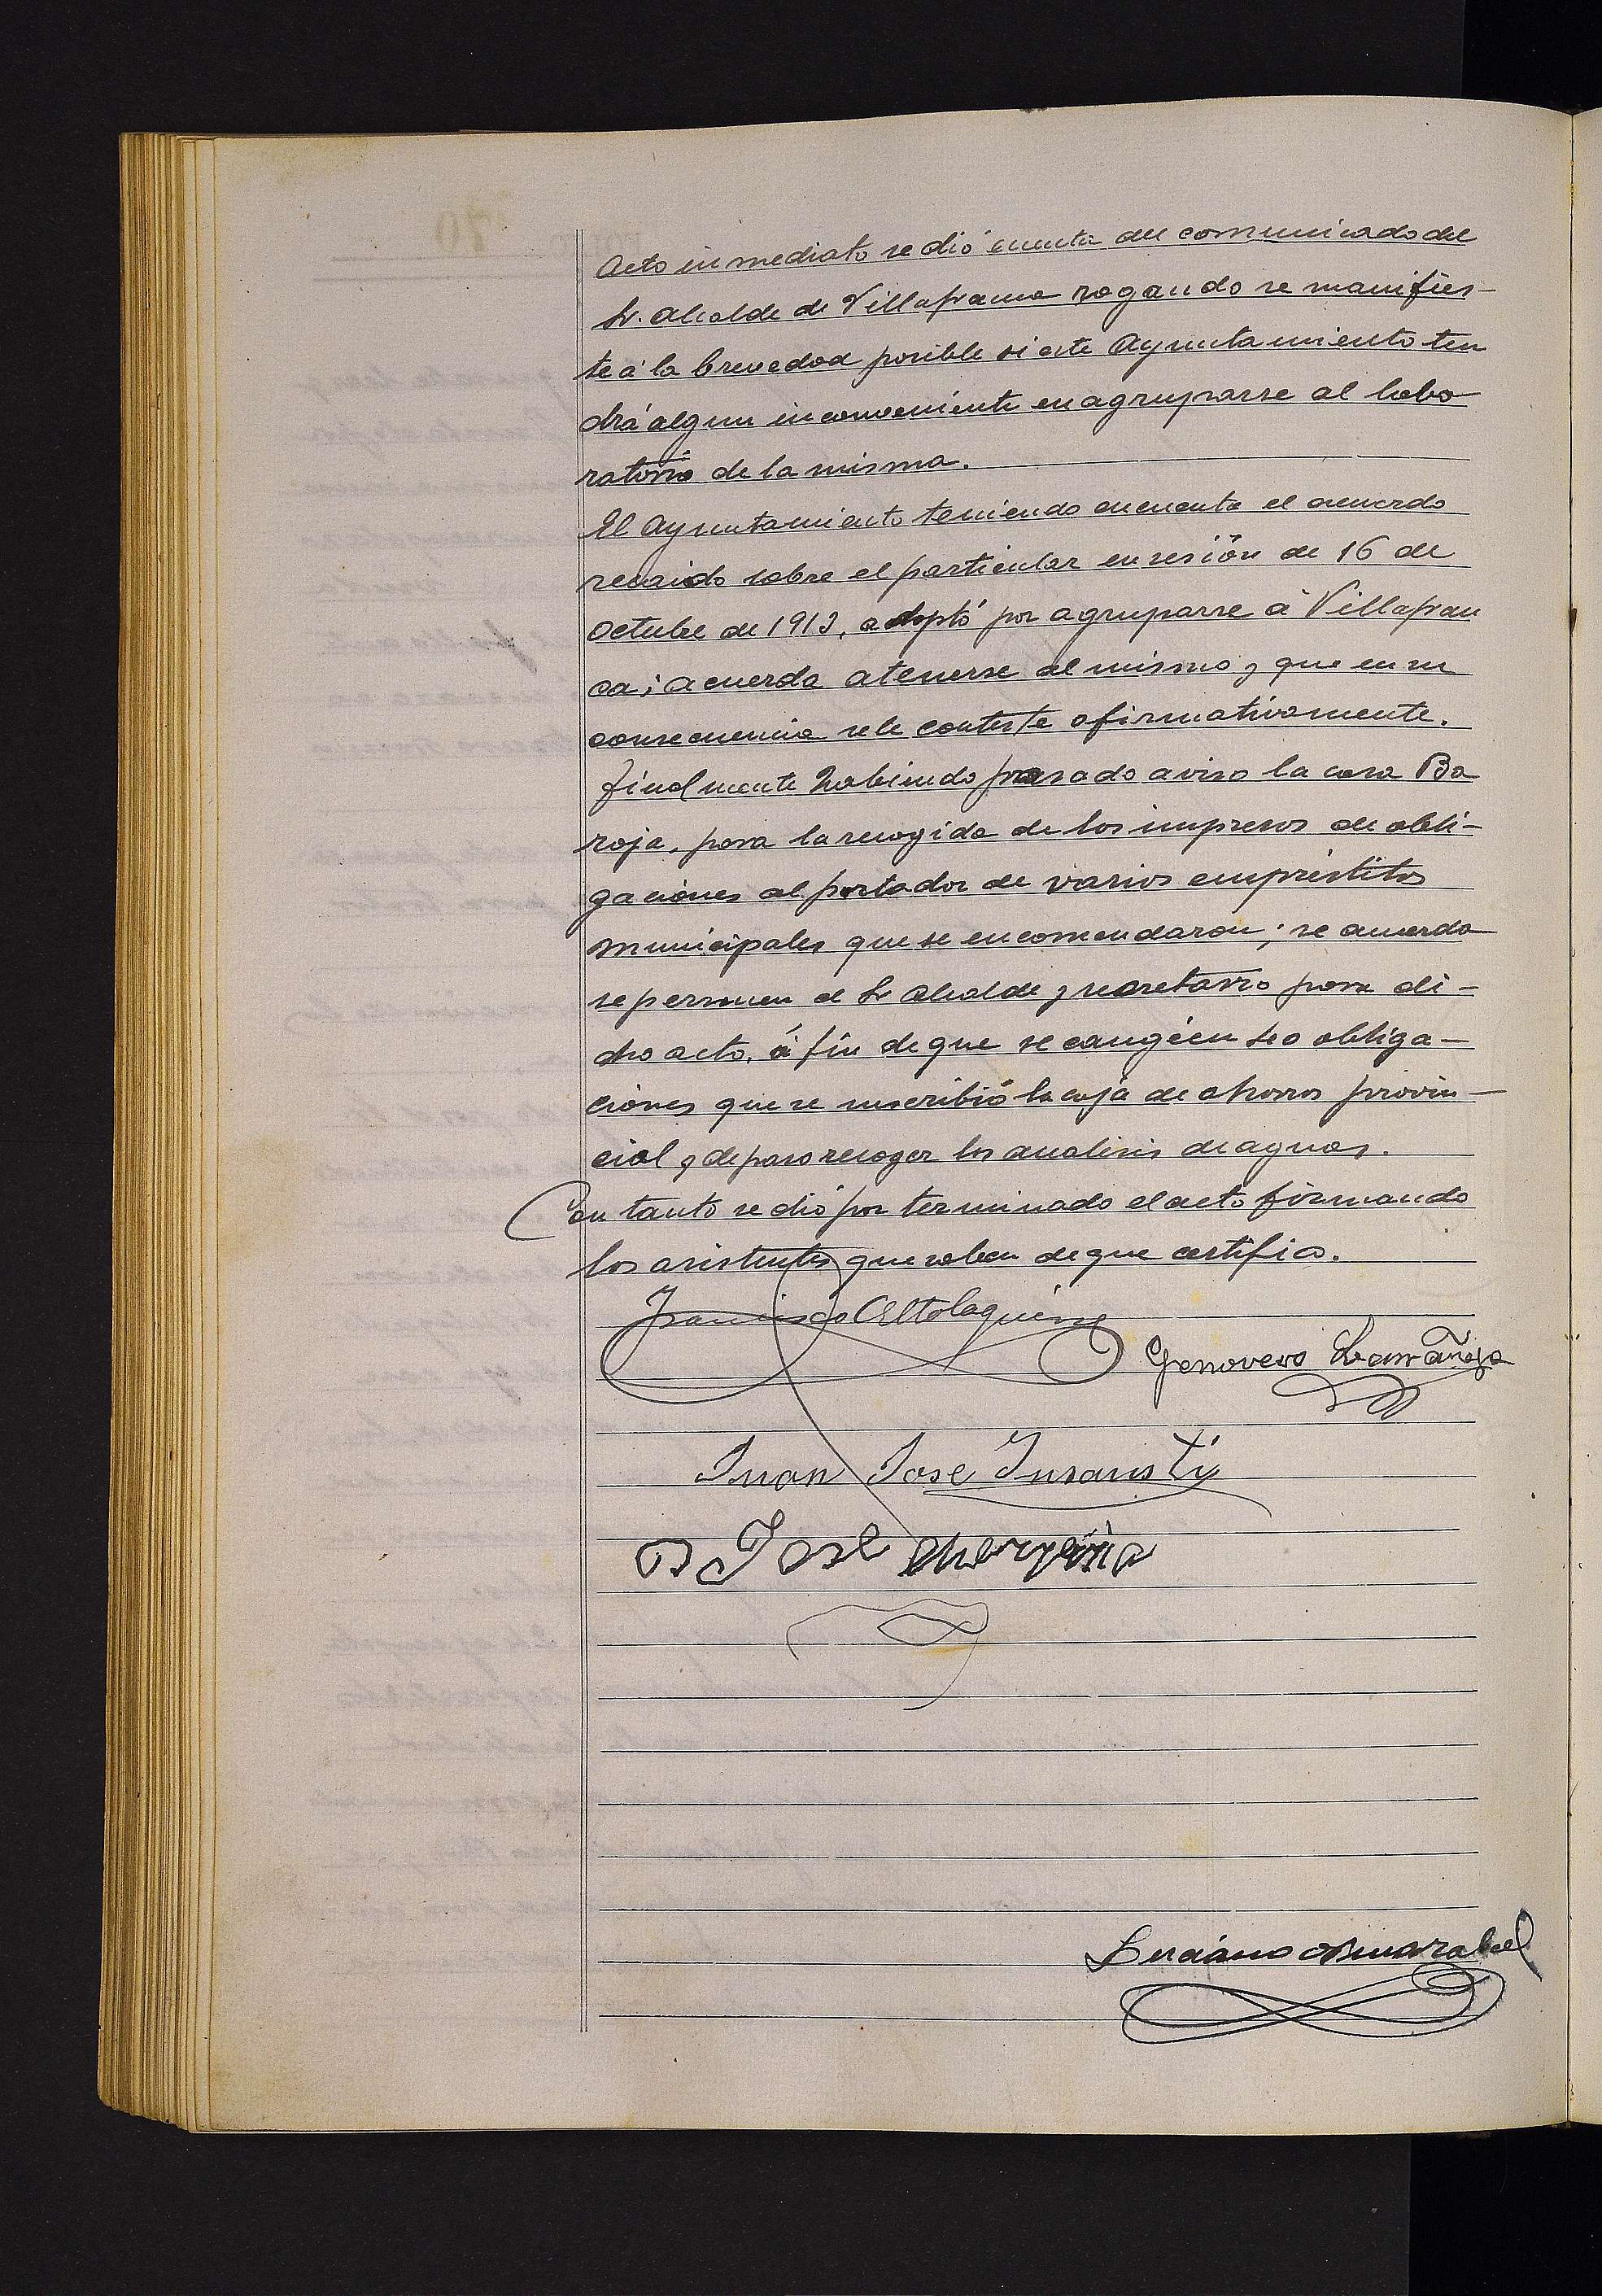 Acto inmediato se dió cuenta del comunicado del
Sr. Alcalde de Villafranca rogando se manifies-
te á la brevedad posible si este Ayuntamiento ten
drá algun inconveniente en agruparse al labo
ratorio de la misma.
El Ayuntamiento teniendo en cuenta el acuerdo
recaido sobre el particular en sesión de 16 de
Octubre de 1913, adoptó por agruparse á Villafran
ca; acuerda atenerse al mismo y que en su
consecuencia se le conteste afirmativamente.
Finalmente habiendo pasado aviso la casa Ba
roja, para la recogida de los impresos de obli-
gaciones al portador de varios empréstitos
municipales que se encomendaron; se acuerda
se personen el Sr Alcalde y secretario para di-
cho acto, á fin de que se cangéen las obliga-
ciones que se suscribió la caja de ahorros provin-
cial y de paso recoger los analisis de aguas.
Con tanto se dió por terminado el acto firmando
los asistentes que saben de que certifico.
Francisco Altolaguirre
Genovevo Larrañaga
Juan José Insausti
José
Luciano